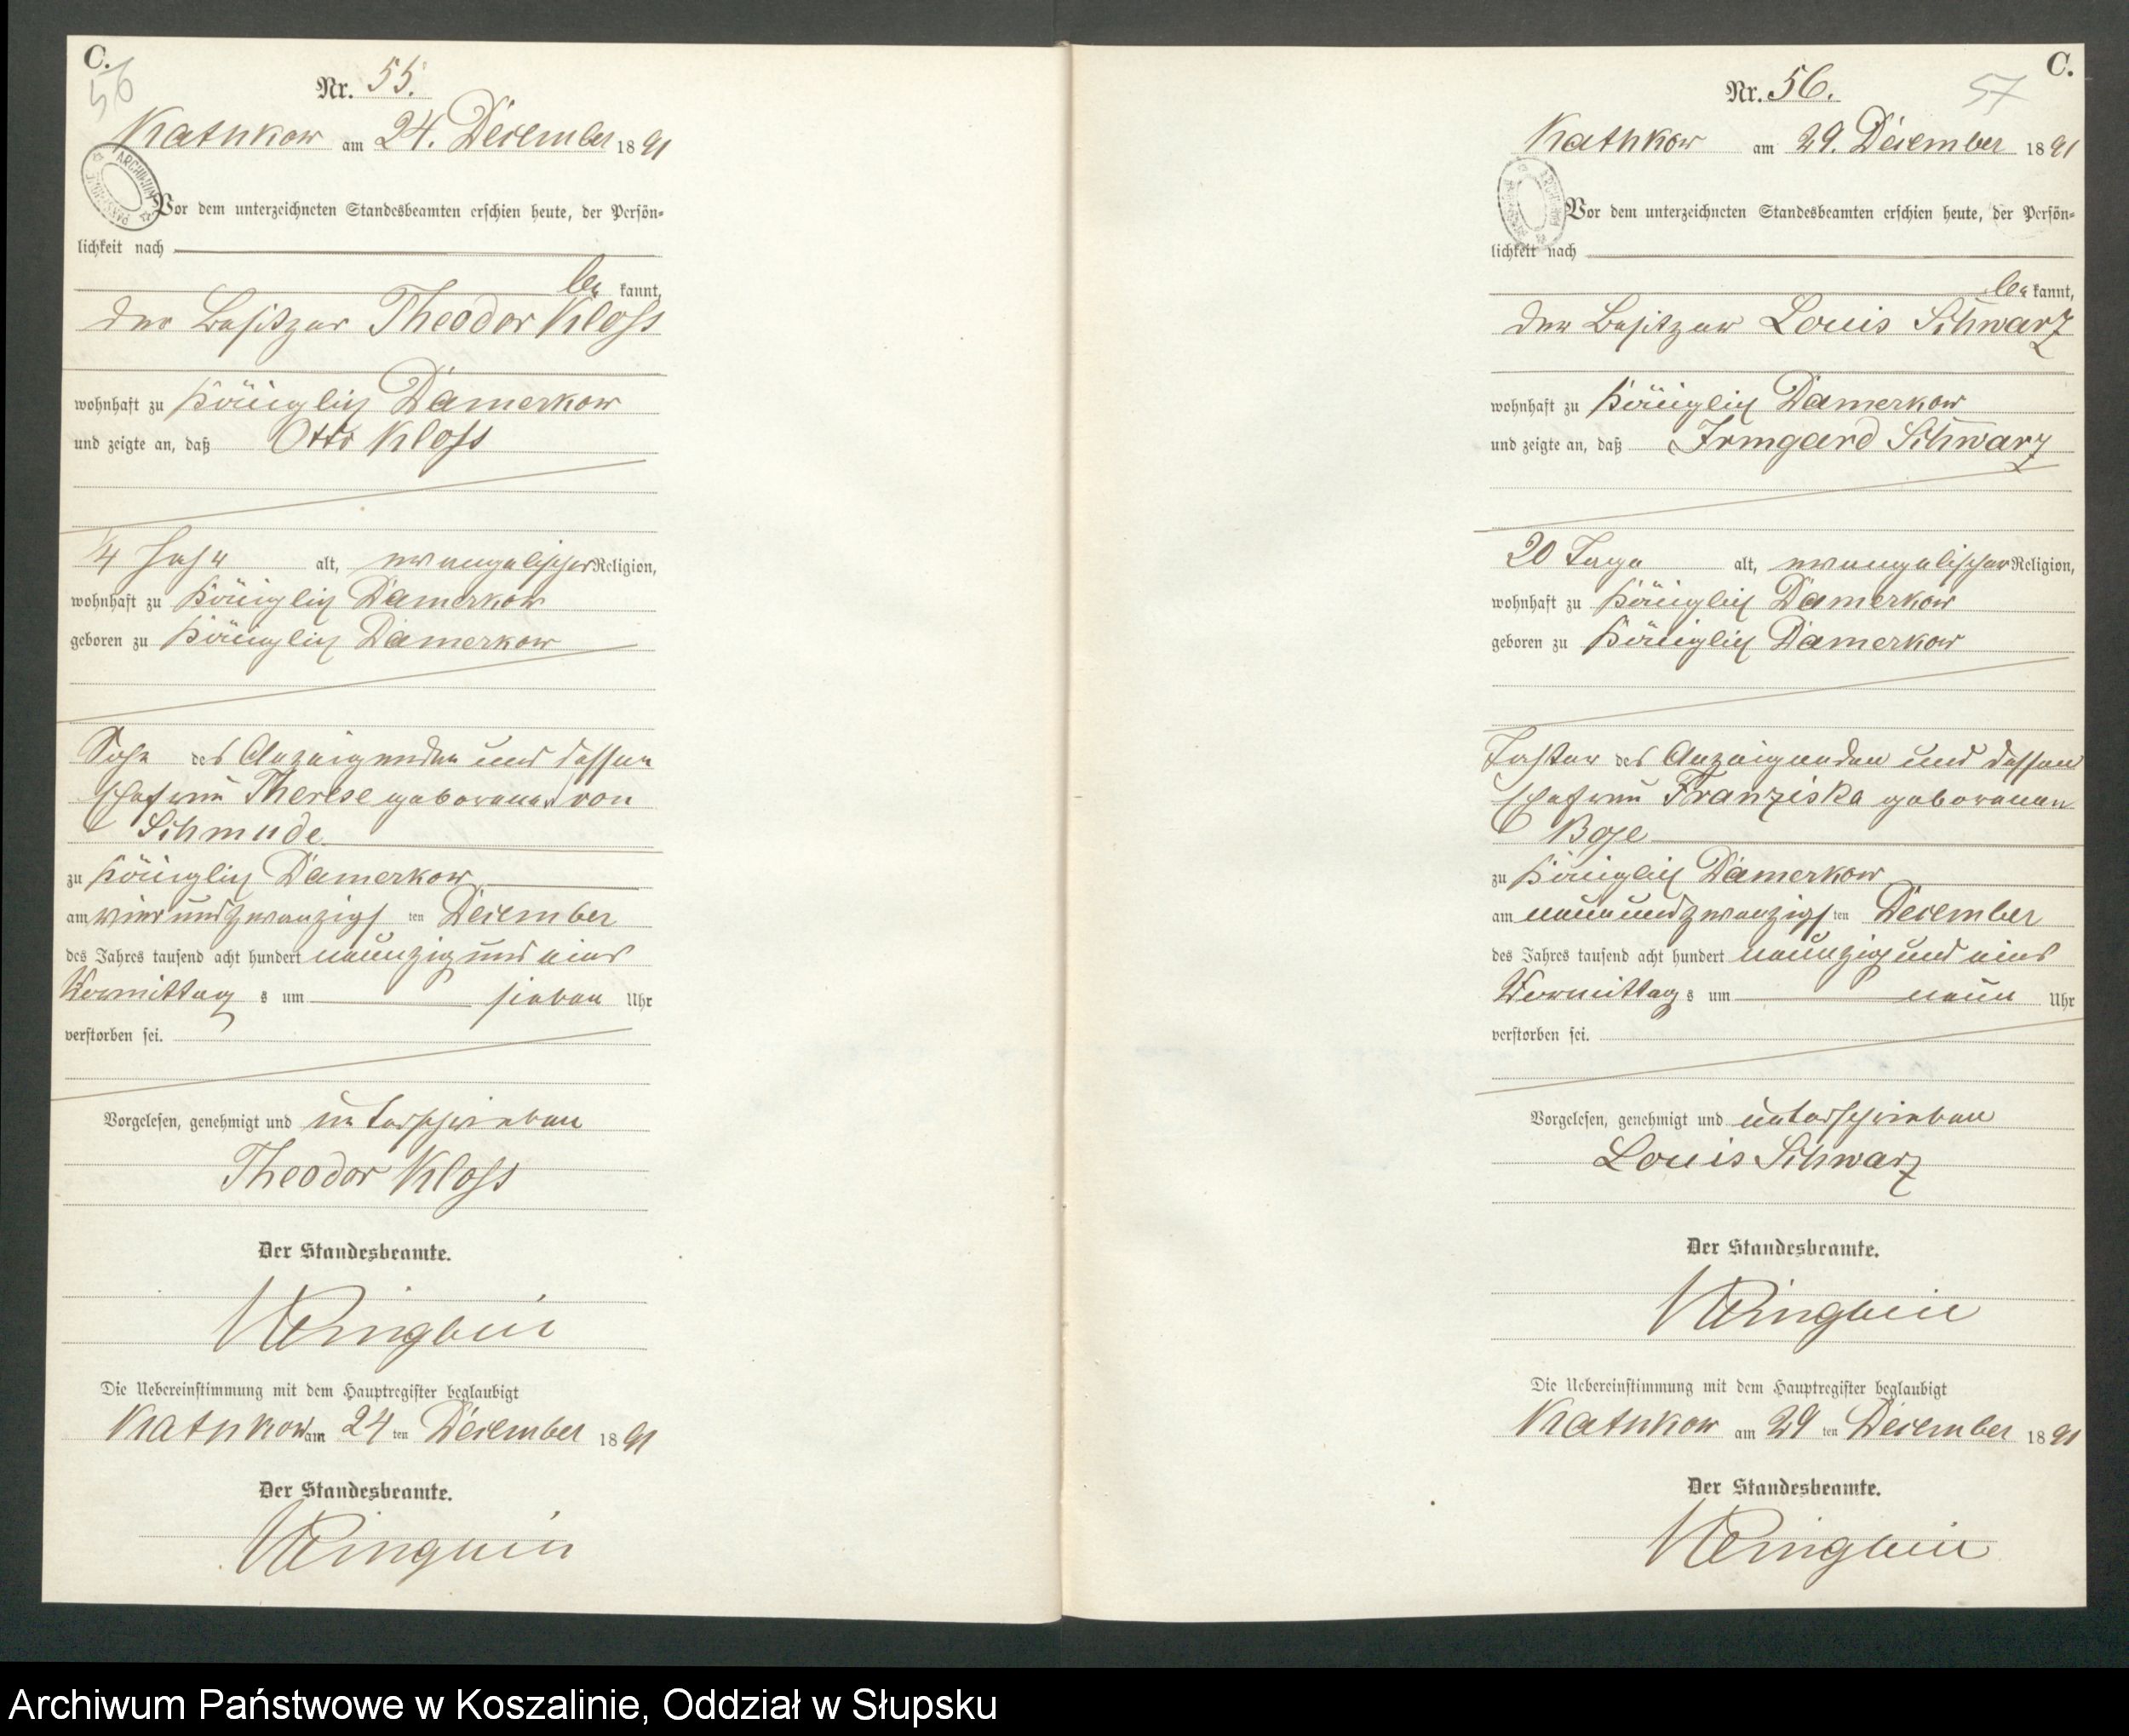 C.
56
Nr. 55.
Kathkow am 24. December 1891
Vor dem unterzeichneten Standesbeamten erschien heute, der Persön-
lichkeit nach
be kannt,
der Besitzer Theodor Kloss
wohnhaft zu Königlich Damerkow
und zeigte an, daß Otto Kloss
alt, evangelischer Religion,
wohnhaft zu Königlich Damerkow
geboren zu Königlich Damerkow
Sohn des Anzeigenden und dessen
Ehefrau Therese geborenen von
Schmude
zu Königlich Damerkow
am vierundzwanzigsten December
des Jahres tausend acht hundert neunzig und eins
Vormittags um sieben Uhr
verstorben sei.
Vorgelesen, genehmigt und unterschrieben
Theodor Kloss
Der Standesbeamte.
Die Uebereinstimmung mit dem Hauptregister beglaubigt
Kathkow am 24ten December 1891
Der Standesbeamte.
C.
57
Nr. 56.
Kathkow am 29. December 1891
Vor dem unterzeichneten Standesbeamten erschien heute, der Persön-
lichkeit nach
be kannt,
der Besitzer Louis Schwarz
wohnhaft zu Königlich Damerkow
und zeigte an, daß Irmgard Schwarz
20 Tage alt, evangelischer Religion,
wohnhaft zu Königlich Damerkow
geboren zu Königlich Damerkow
Tochter des Anzeigenden und dessen
Ehefrau Franziska geborenen
zu Königlich Damerkow
am neunundzwanzigsten December
des Jahres tausend acht hundert neunzig und eins
Vormittags um neun Uhr
verstorben sei.
Vorgelesen, genehmigt und unterschrieben
Louis Schwarz
Der Standesbeamte.
Die Uebereinstimmung mit dem Hauptregister beglaubigt
Kathkow am 29ten December 1891
Der Standesbeamte.
Archiwum Państwowe w Koszalinie, Oddział w Słupsku